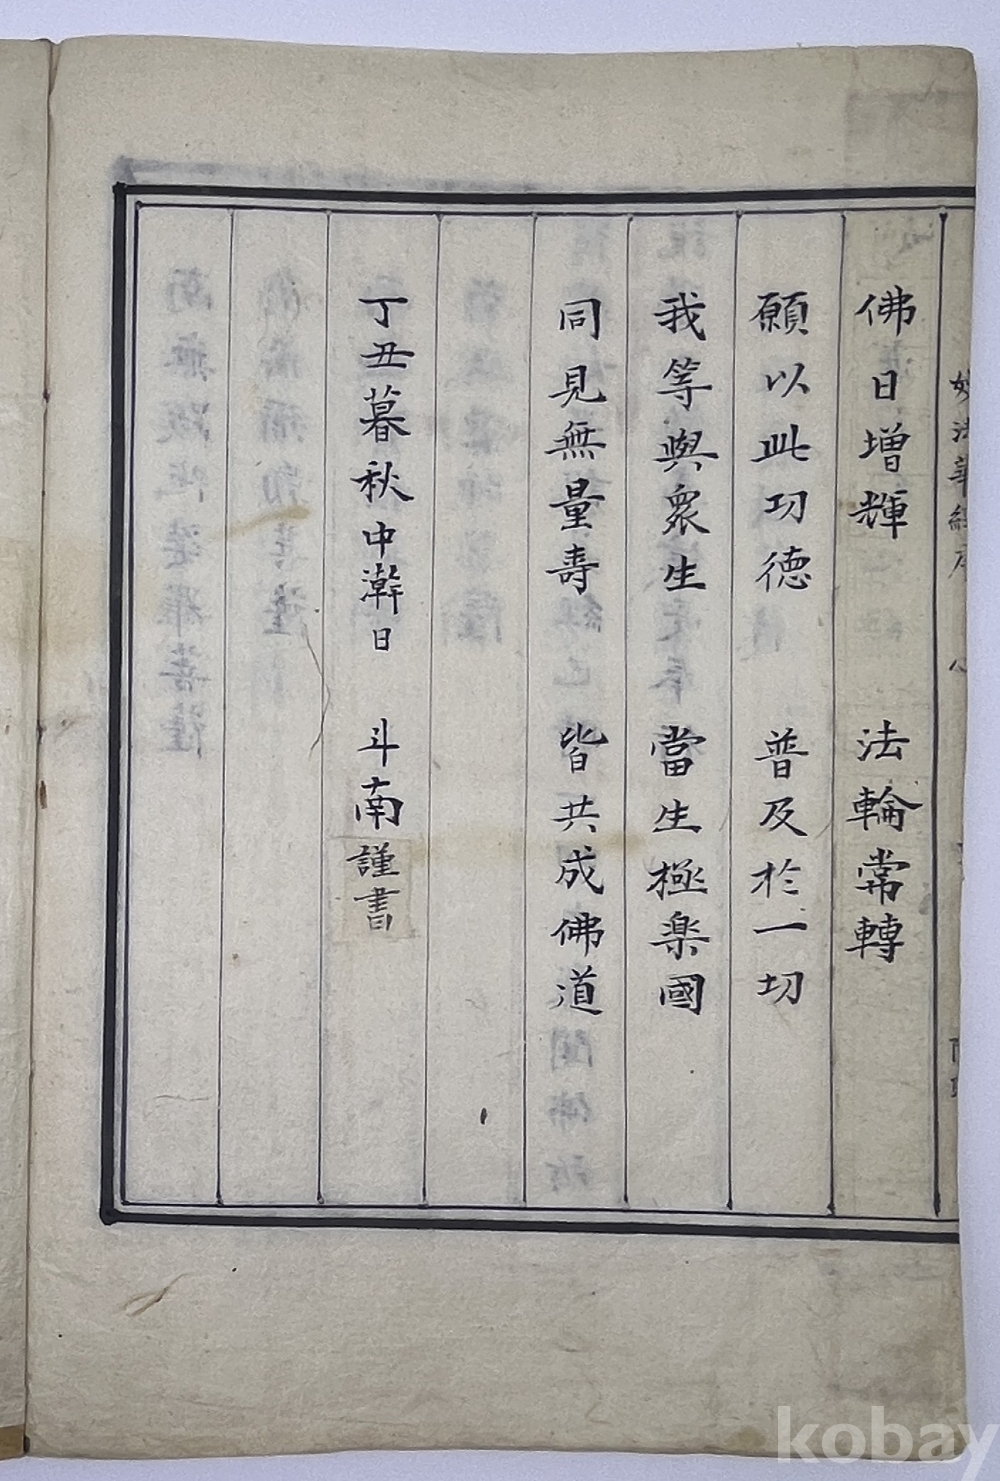 佛日增輝 法輪常轉
願以此功德 普及於一切
我等與衆生 當生極楽國
同見無量壽 皆共成佛道
丁丑暮秋中澣日 斗南謹書
妙法華經序
kobay